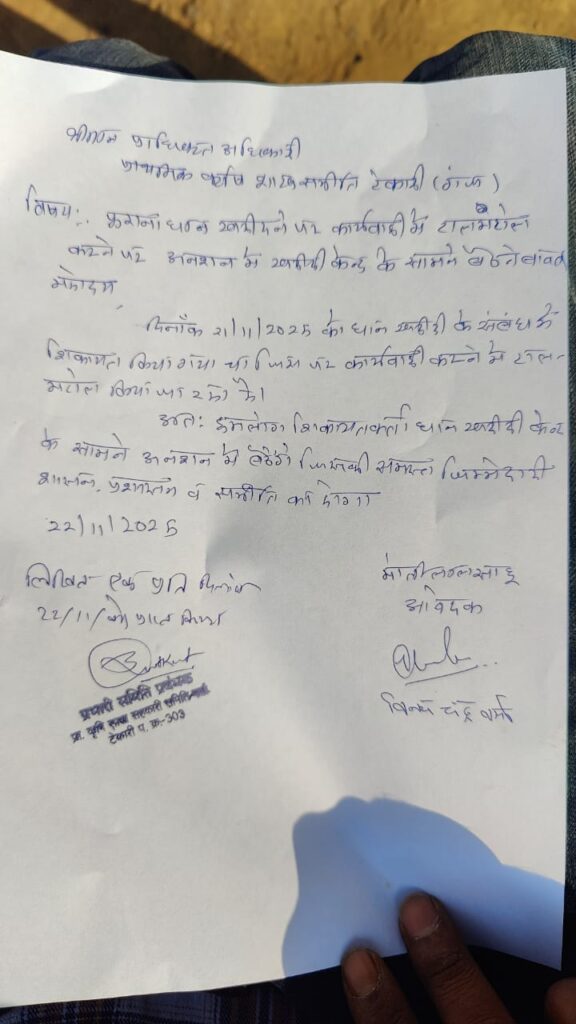 श्रीमान प्राधिकृत अधिकारी
प्राथमिक कृषि शाख समिति टेकारी (
विषय:- पुराना धान खरीदने पर कार्यवाही में टालमटोल
करने पर अनशन में खरीदी केन्द्र के सामने बैठने बाबत
महोदय,
दिनाँक 21/11/2025 को धान खरीदी के संबंध में
शिकायत किया गया था जिस पर कार्यवाही करने में टाल-
मटोल किया जा रहा है।
अतः हमलोग शिकायतकर्ता धान खरीदी केन्द्र
के सामने अनशन में बैठेंगे जिसकी समस्त जिम्मेदारी
शासन, प्रशासन व समिति का होगा
22/11/2025
लिखित एक प्रति दिनांक
22/11/ को प्राप्त किया
मोतीलाल साहू
आवेदक
प्रभारी समिति प्रबंधक
प्रा. कृषि साख सहकारी समिति मर्या.
टेकारी पं. क्र.-303
विनय चंद्र वर्मा